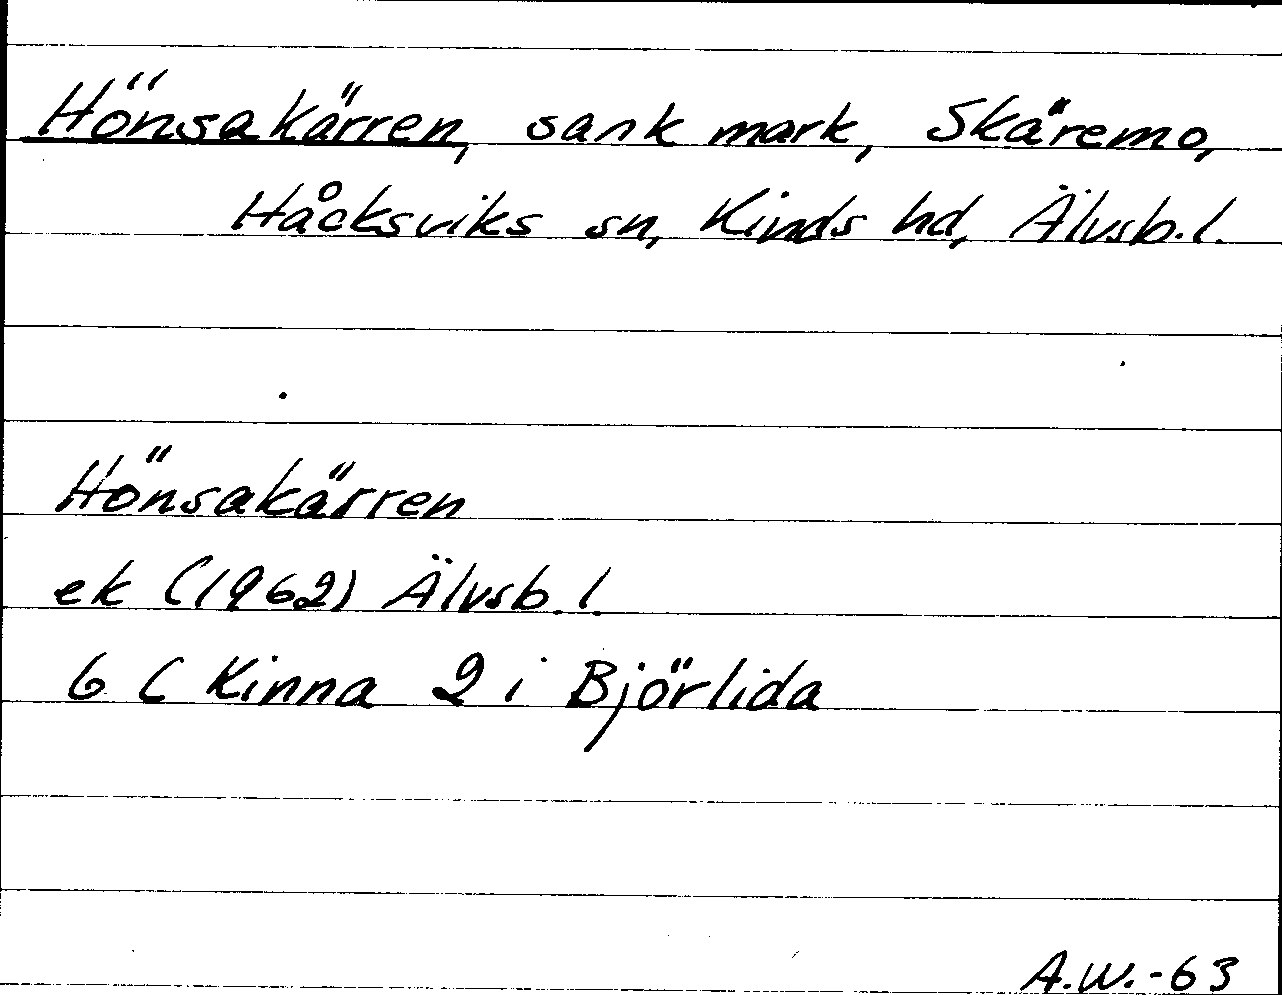 Hönsakärren, sank mark, Skäremo,
Håcksviks sn, Kinds hd, Älvsb.l.
Hönsakärren
ek (1962) Älvsb.l.
6 C Kinna 2 i Björlida
A.W.-63